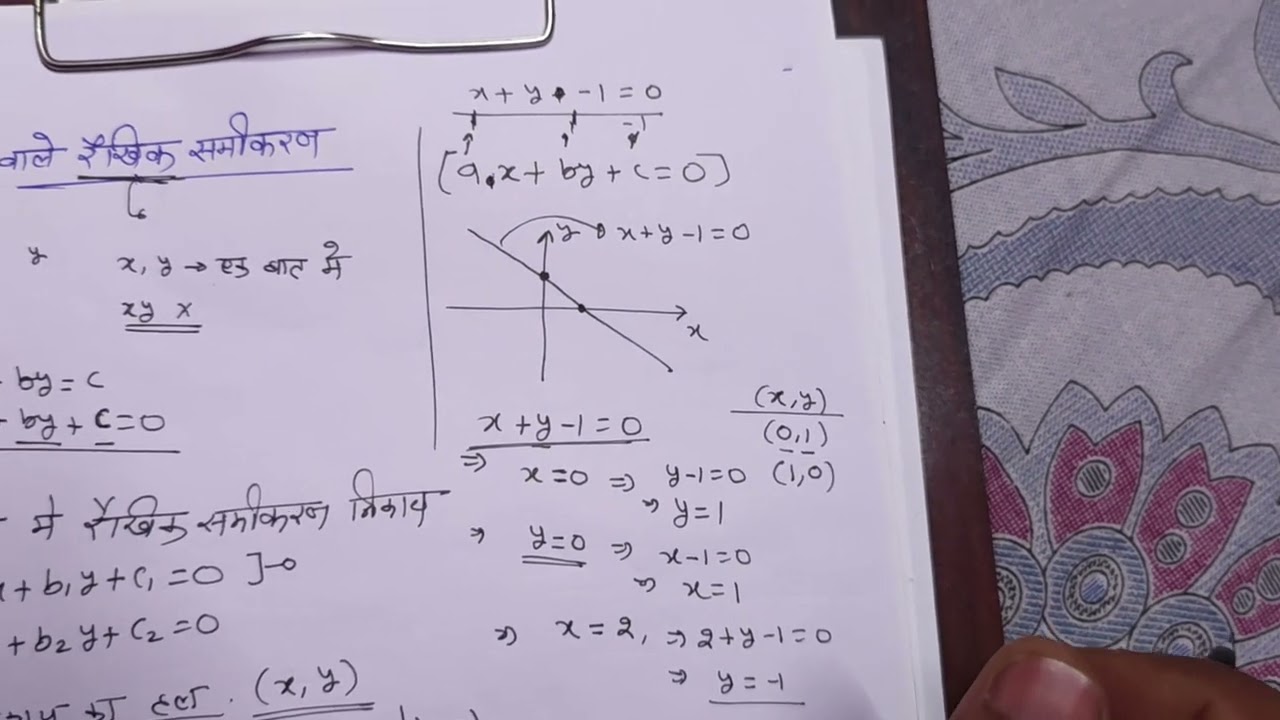 वाले रैखिक समीकरण
y
x, y → एक बात में
xy x
by = c
by + c = 0
में रैखिक समीकरण निकाय
x + b₁y + c₁ = 0 ]-0
+ b₂y + c₂ = 0
हल (x, y)
x + y - 1 = 0
-1
[a.x + by + c = 0]
y x+y-1=0
x
x + y - 1 = 0
(x, y)
(0,1)
⇒ x = 0 ⇒ y-1=0 (1,0)
⇒ y = 1
⇒ y=0 ⇒ x-1=0
⇒ x = 1
⇒ x = 2, ⇒ 2+y-1=0
⇒ y = -1